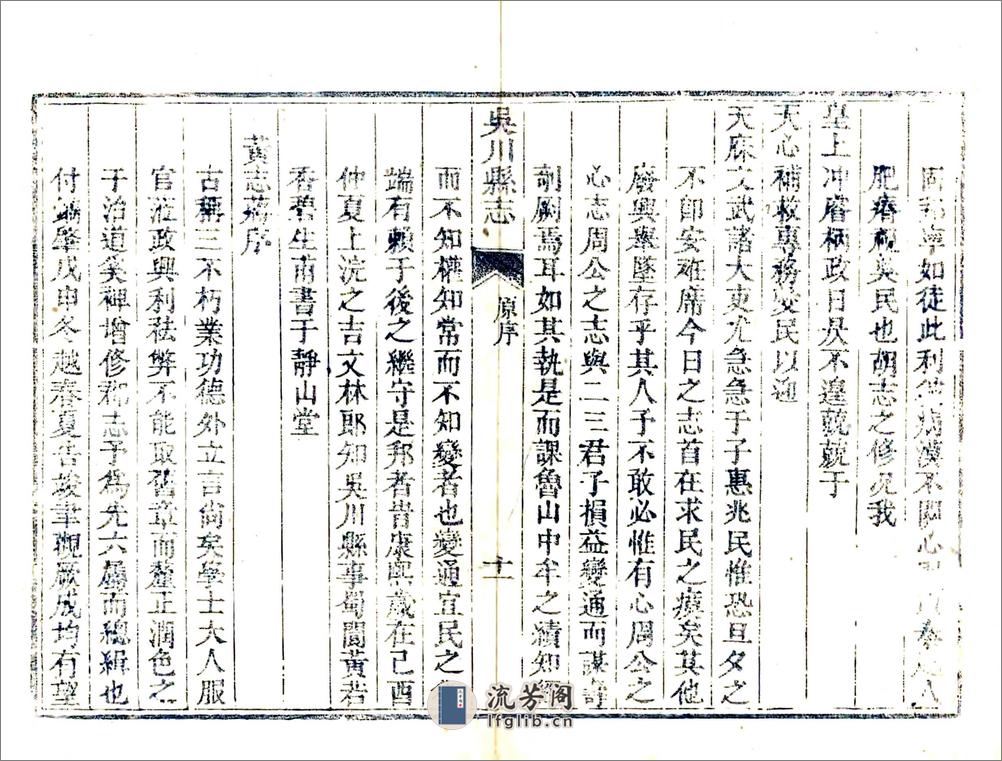 固邦寧如徒此利獘病漠不關心
肥瘠視吳民也胡志之修况我
皇上冲齡柄政日昃不遑兢兢于
天心補救專務安民以迎
天庥文武諸大吏尤急急于子惠兆民惟恐旦夕之
不即安袵席今日之志首在求民之瘼矣其他
廢興舉墜存乎其人予不敢必惟有心周公之
心志周公之志與二三君子損益變通而謀壽
剞劂焉耳如其執是而課魯山中牟之績知
吳川縣志
原序
十一
而不知權知常而不知變者也變通宜民之
端有賴于後之繼守是邦者旹康熙歲在己酉
仲夏上浣之吉文林郎知吳川縣事蜀閬黃若
香碧生甫書于靜山堂
黃志蔣序
古稱三不朽業功德外立言尚矣學士大人服
官涖政興利祛弊不能取舊章而釐正潤色之
于治道奚裨增修郡志予爲先六屬而總緝也
付端肇戊申冬越春夏告竣聿觀厥成均有望
流芳阁
lfglib.cn